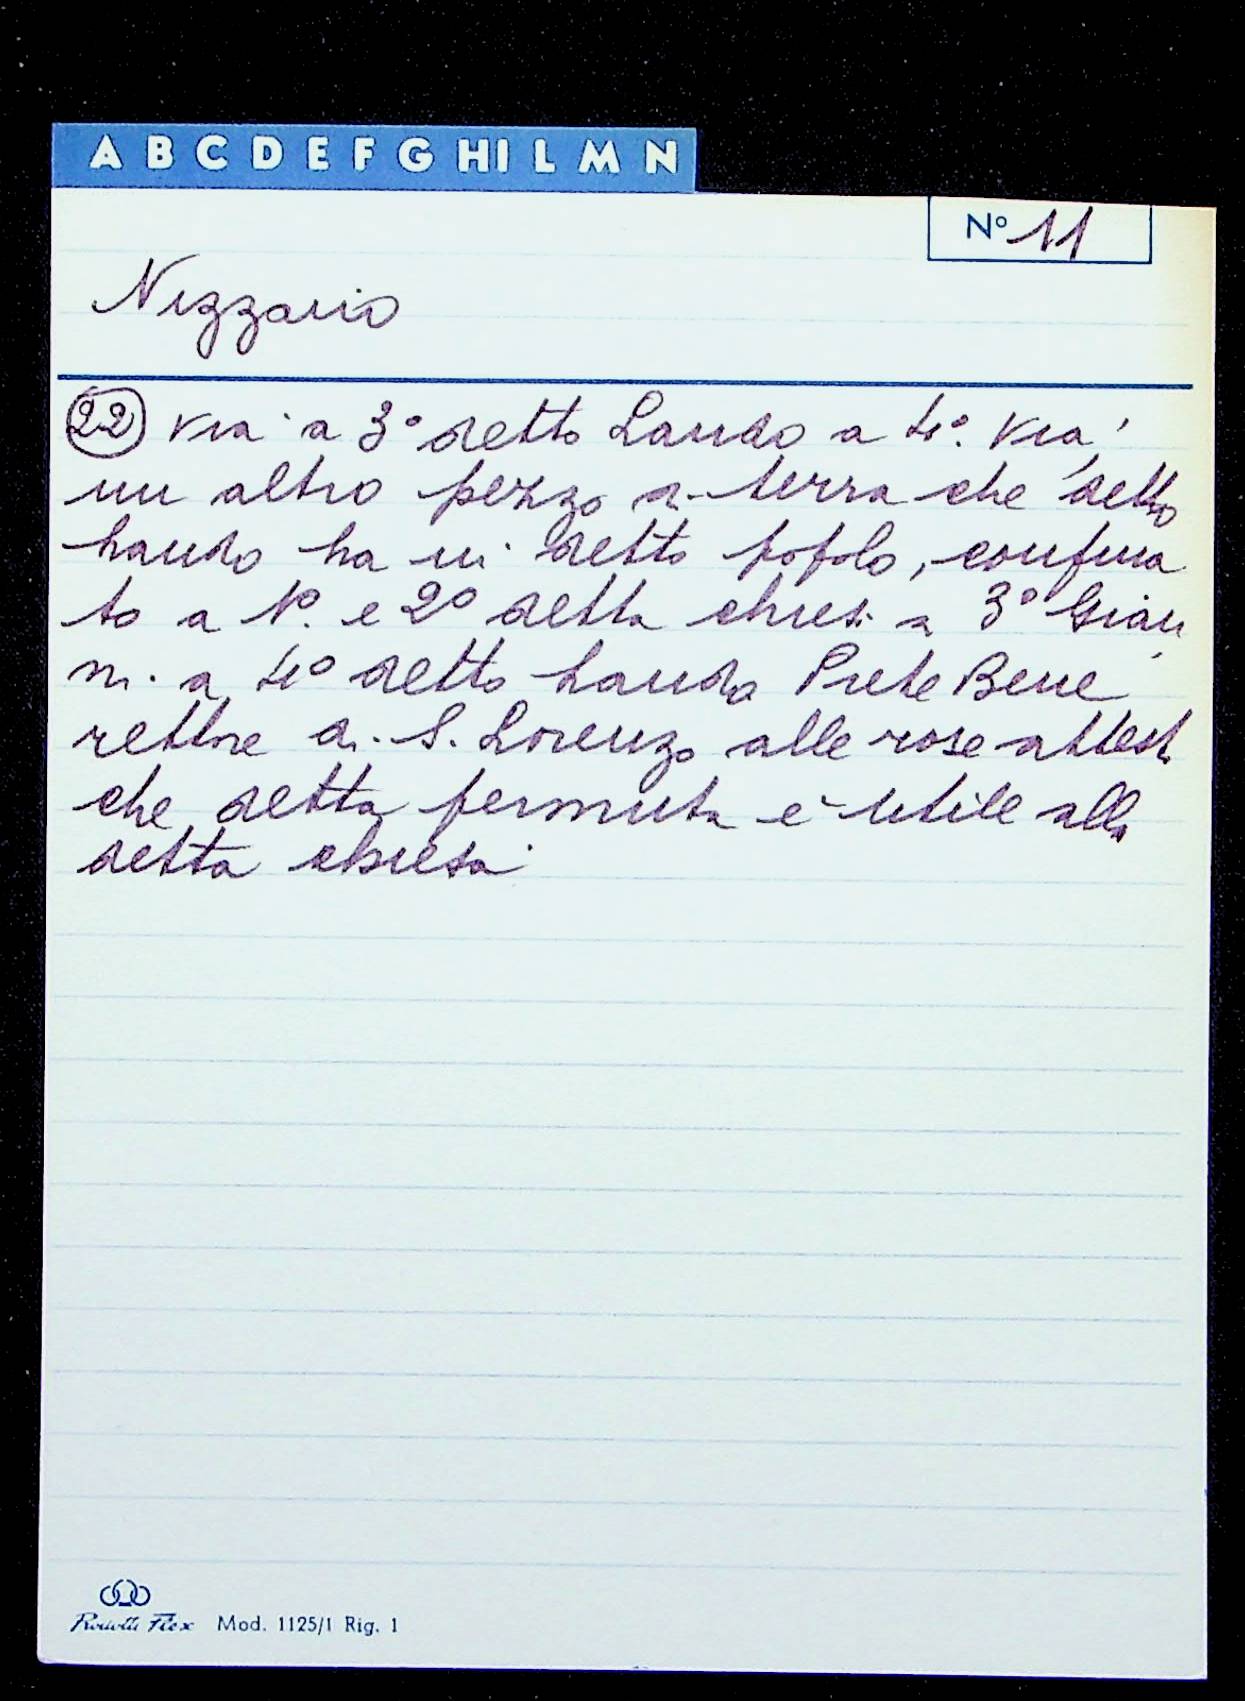 A B C D E F G HI L M N
N° 11
Nizzario
22 via a 3° detto Lando a 4°. via
un altro pezzo di terra che detto
Lando ha in detto popolo, confina
to a 1°. e 2° detta chiesa a 3° Gian
ni a 4° detto Lando Prete Bene
rettore di S. Lorenzo alle rose attest
che detta permuta è utile alla
detta chiesa
Mod. 1125/1 Rig. 1